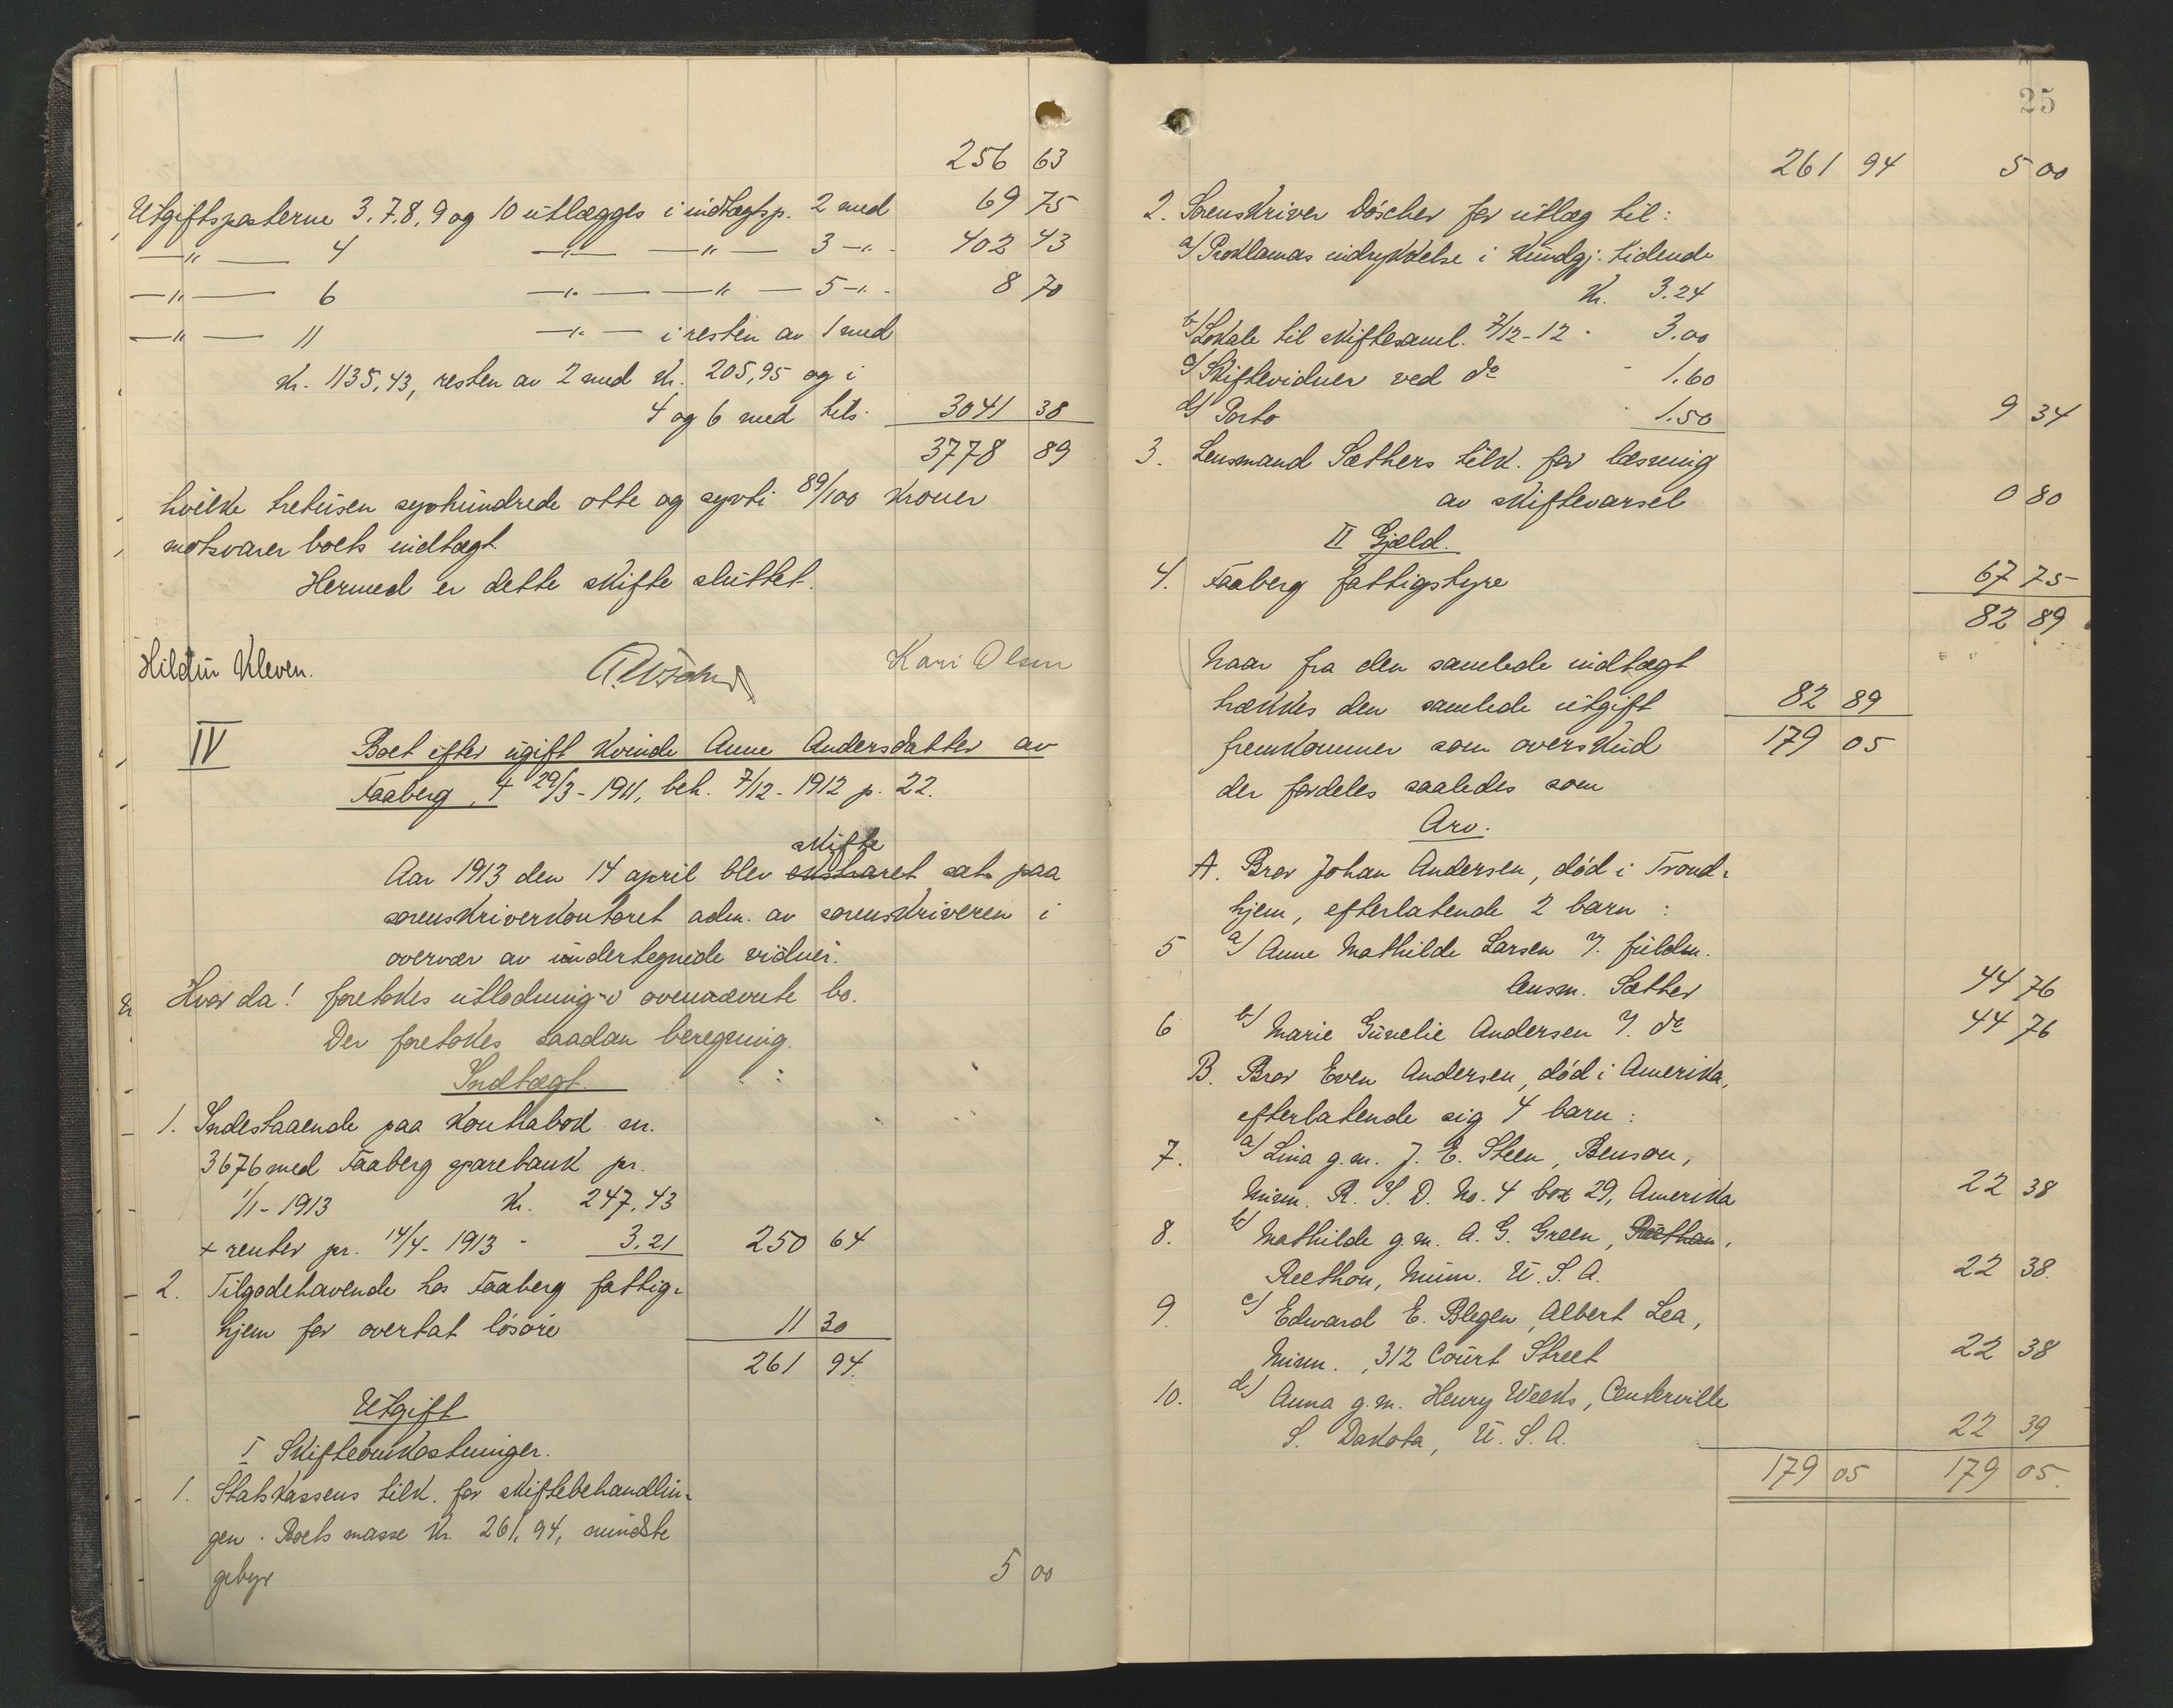 256 63
Utgiftsposterne 3.7.8.9 og 10 utlægges i indtægtsp. 2 med 69 75
—"— 4 —"— —"— 3 —"— 402 43
—"— 6 —"— —"— 5 —"— 8 70
—"— 11 —"— i resten av 1 med
kr. 1135,43, resten av 2 med kr. 205,95 og i
4 og 6 med tils. 3041 38
3778 89
hvilke tretusen syvhundrede otte og sytti 89/100 kroner
motsvarer boets indtægt.
Hermed er dette skifte sluttet.
Hildur Kleven. Kari Olsen
IV Boet efter ugift kvinde Anne Andersdatter av
Faaberg, † 29/3-1911, beh. 7/12-1912 p. 22.
skifte
Aar 1913 den 14 april blev ekstraret sat paa
sorenskriverkontoret adm. av sorenskriveren i
overvær av undertegnede vidner.
Hvor da! foretokes utlodning i ovennævnte bo.
Der foretokes saadan beregning.
Indtægt
1. Indestaaende paa kontrabok nr.
3676 med Faaberg sparebank pr.
1/1-1913 kr. 247,43
+ renter pr. 14/4-1913 - 3.21 250 64
2. Tilgodehavende hos Faaberg fattig-
hjem for overtat løsøre 11 30
261 94.
Utgift
I Skifteomkostninger.
1. Statskassens tilk. for skiftebehandlin-
gen. Boets masse kr. 261,94, mindste
gebyr 5 00
25
261 94 5 00
2. Sorenskriver Döscher for utlæg til:
a) Proklamas indrykkelse i Kundgj. tidende
kr. 3.24
b) Lokale til skiftesaml. 7/12-12 - 3.00
c) Skiftevidner ved do - 1.60
d) Porto - 1.50 9 34
3. Lensmand Sæthers tilk. for læsning
av skiftevarsel 0 80
II Gjæld.
4. Faaberg fattigstyre 67 75
82 89
Naar fra den samlede indtægt
trækkes den samlede utgift 82 89
fremkommer som overskud 179 05
der fordeles saaledes som
Arv.
A. Bror Johan Andersen, død i Trond-
hjem, efterlatende 2 barn:
5 a) Anne Mathilde Larsen v. fuldm.
lensm. Sæther 44 76
6 b) Marie Gunelie Andersen v. do 44 76
B. Bror Even Andersen, død i Amerika,
efterlatende sig 4 barn:
7. a) Lina g.m. J. E. Steen, Benson,
Minn. R. F. D. No. 4 box 29, Amerika 22 38
8. b) Mathilde g.m. A. G. Green, Reethan,
Reethon, Minn. U. S. A. 22 38.
9. c) Edward E. Blegen, Albert Lea,
Minn., 312 Court Street 22 38
10. d) Anna g.m. Henry Weeks, Centerville
S. Dakota, U. S. A. 22 39
179 05 179 05.